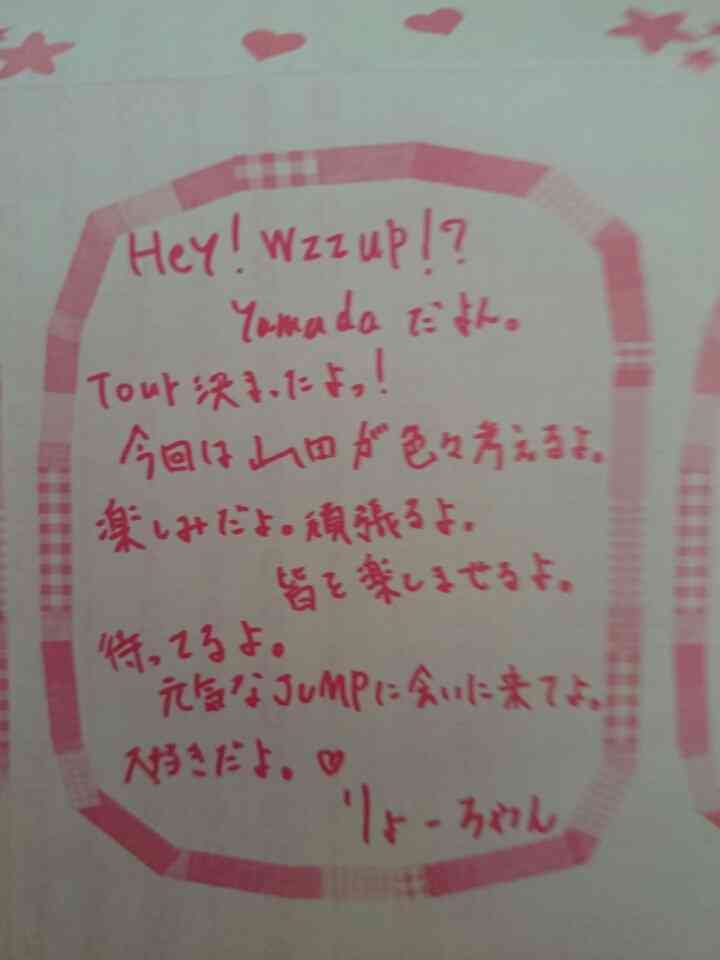 Hey! Wzzup!?
Yamada だよん。
Tour 決まったよっ!
今回は山田が色々考えるよ。
楽しみだよ。頑張るよ。
皆を楽しませるよ。
待ってるよ。
元気なJUMPに会いに来てよ。
大好きだよ。♡
りょーちゃん